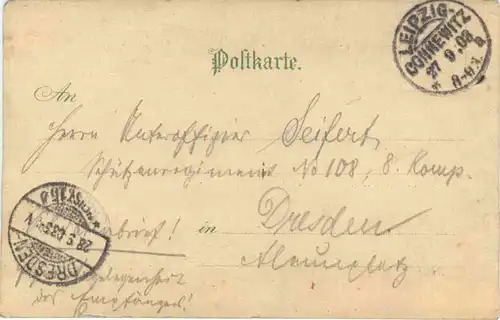 Postkarte.
LEIPZIG-
CONNEWITZ
27 9 03
8-9 N
An
Herrn Unteroffizier Seifert,
Schützenregiment No 108, 8. Komp.
in Dresden
Alaunplatz
DRESDEN
28 9 03
Angelegenheit
des Empfängers!